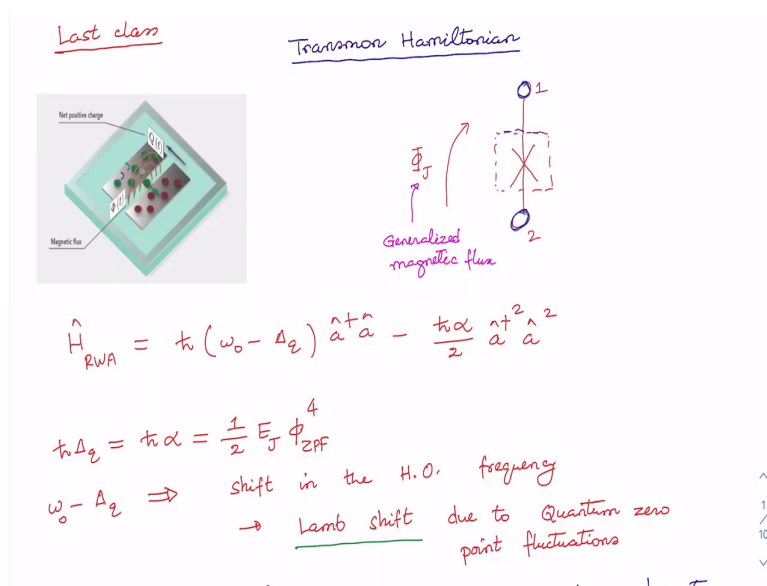 Last class
Transmon Hamiltonian
Net positive charge
Q(t)
Φ(t)
Magnetic flux
1
Φ_J
2
Generalized
magnetic flux
Ĥ_RWA = ħ(ω₀ - Δ_q) â†â - ħα/2 â†² â²
ħΔ_q = ħα = 1/2 E_J ϕ⁴_ZPF
ω₀ - Δ_q ⇒ shift in the H.O. frequency
→ Lamb shift due to Quantum zero
point fluctuations
1
/
10